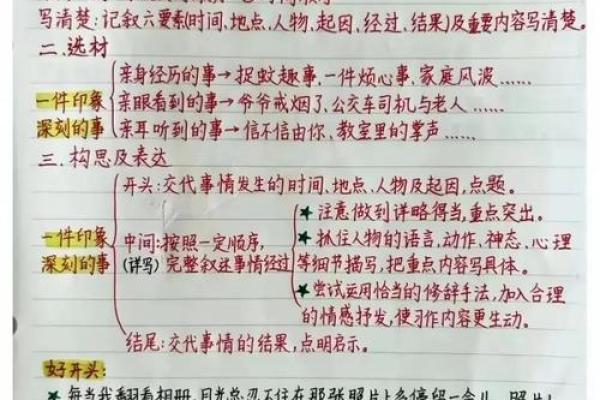 写清楚:记叙六要素(时间、地点、人物、起因、经过、结果)及重要内容写清楚。
二.选材
亲身经历的事→捉蚊趣事、一件烦心事、家庭风波……
一件印象
亲眼看到的事→爷爷戒烟了、公交车司机与老人……
深刻的事
亲耳听到的事→信不信由你、教室里的掌声……
三.构思及表达
开头:交代事情发生的时间、地点、人物及起因,点题。
★注意做到详略得当,重点突出。
一件印象
中间:按照一定顺序,
★抓住人物的语言、动作、神态、心理
深刻的事
(详写)完整叙述事情经过
等细节描写,把重点内容写具体。
★尝试运用恰当的修辞手法,加入合理
的情感抒发,使习作内容更生动。
结尾:交代事情的结果,点明启示。
好开头:
★每当我翻看相册,目光总忍不住在那张照片上多停留一会儿。照片